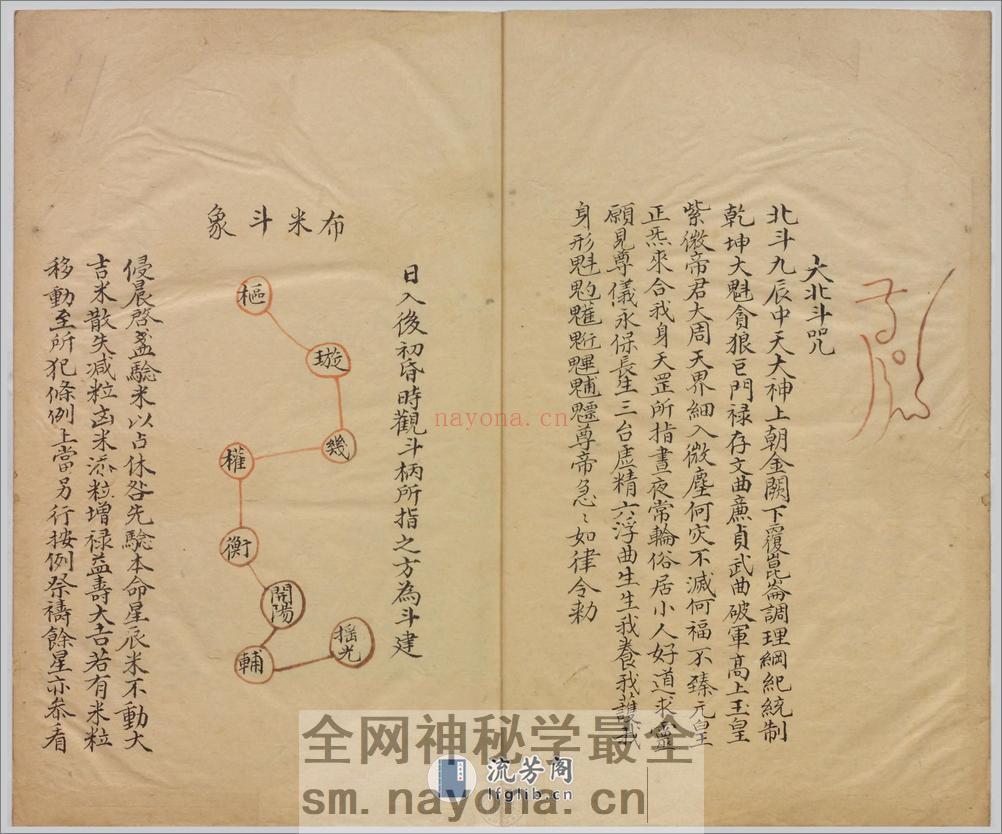 大北斗咒
北斗九辰中天大神上朝金闕下覆崑崙調理綱紀統制
乾坤大魁貪狼巨門禄存文曲廉貞武曲破軍高上玉皇
紫微帝君大周天界細入微塵何灾不滅何福不臻元皇
正炁來合我身天罡所指晝夜常輪俗居小人好道求靈
願見尊儀永保長生三台虛精六浮曲生生我養我護我
身形魁𩲃䰢魓魒尊帝急〻如律令勅
日入後初昏時觀斗柄所指之方為斗建
布米斗象
樞
璇
幾
權
衡
開陽
輔
揺光
侵晨啓盞驗米以占休咎先驗本命星辰米不動大
吉米散失減粒凶米添粒增禄益壽大吉若有米粒
移動至所犯條例上當另行按例祭禱餘星亦叅看
nayona.cn
全网神秘学最全
流芳阁
lfglib.cn
sm.nayona.cn